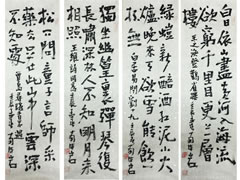 白日依山盡黃河入海流
欲窮千里目更上一層
樓
綠螘新醅酒紅泥小火
爐晚來天欲雪能飲一
杯無 白居易問劉十九
獨坐幽篁裏彈琴復
長嘯深林人不知明月來
相照 王維詩
松下問童子言師采
藥去只在此山中雲深
不知處